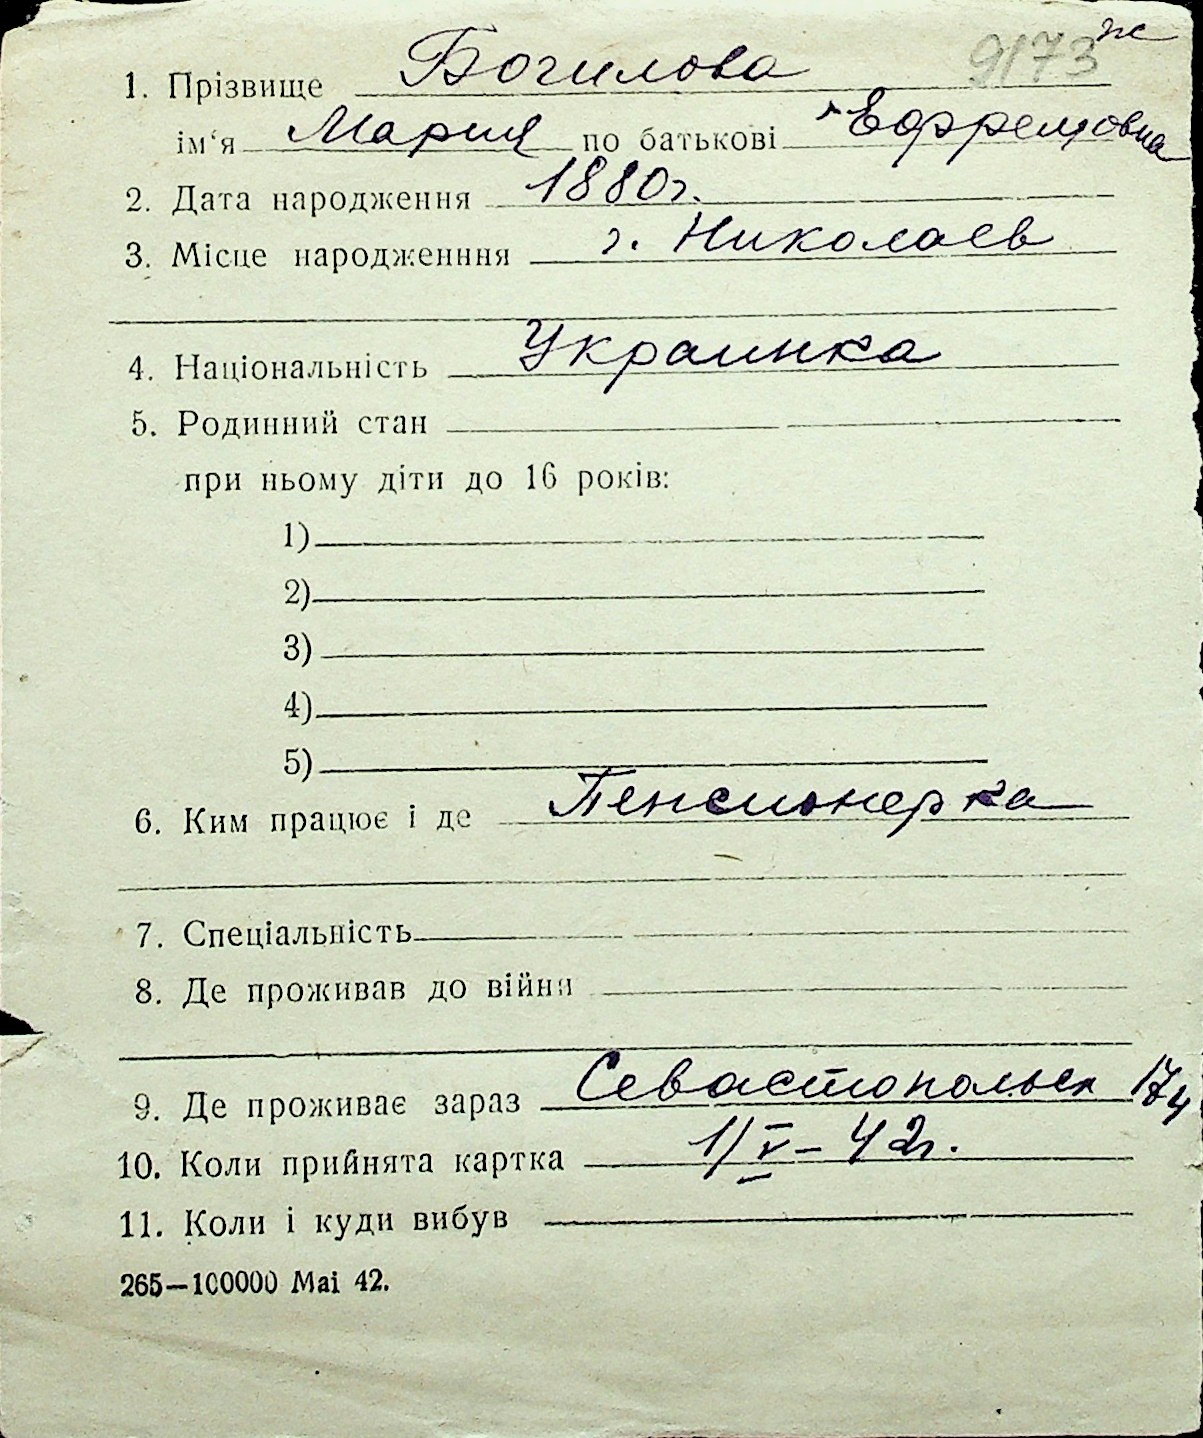 9173 ж
1. Прізвище Богилова
ім‘я Мария по батькові Ефремовна
2. Дата народження 1880г.
3. Місце народженння г. Николаев
4. Національність Украинка
5. Родинний стан
при ньому діти до 16 років:
1)
2)
3)
4)
5)
6. Ким працює і де Пенсионерка
7. Спеціальність
8. Де проживав до війни
9. Де проживає зараз Севастопольск 174
10. Коли прийнята картка 1/V–42г.
11. Коли і куди вибув
265—100000 Mai 42.